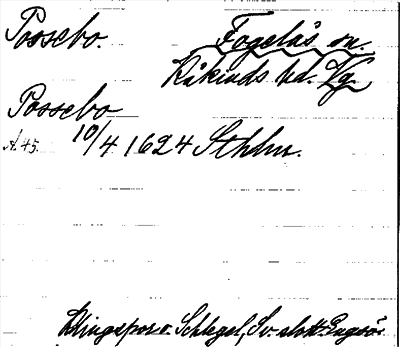 Possebo. Fogelås sn.
Kåkinds hd. Vg.
Possebo
A. 45. 10/4 1624 Sthlm.
Klingspor o. Schlegel, Sv. slott: Engsö